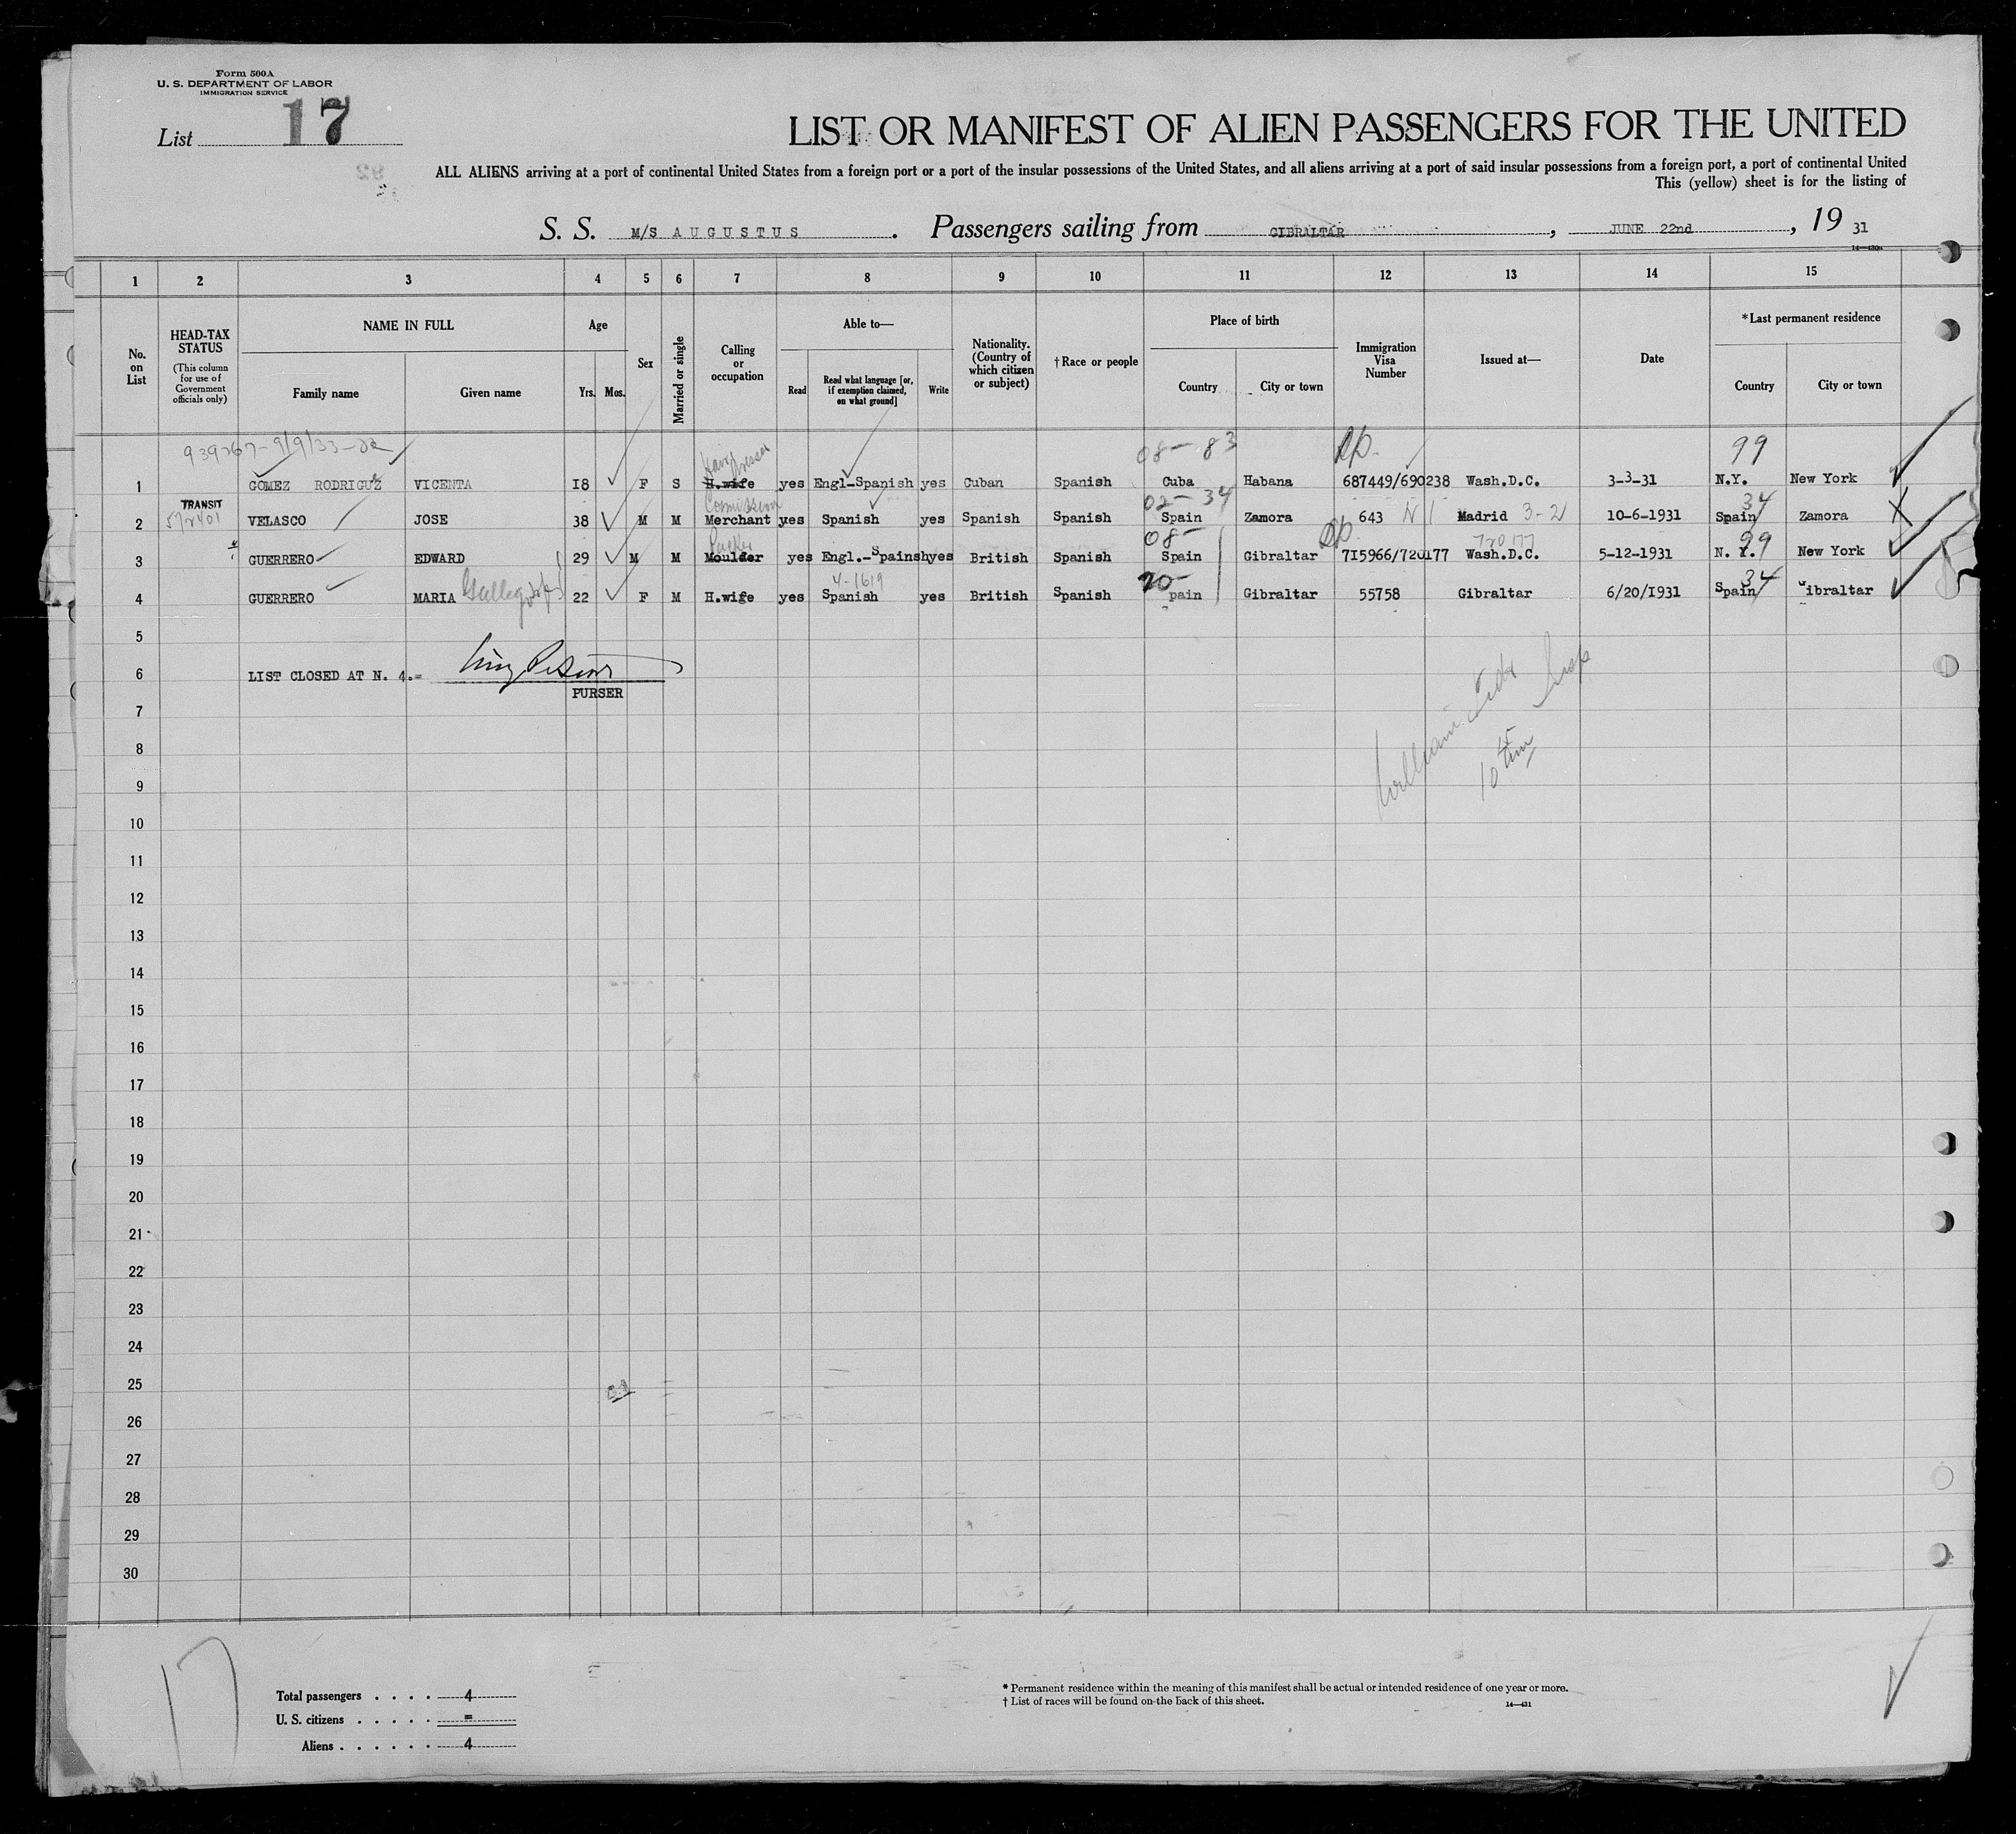 Form 500A
U. S. DEPARTMENT OF LABOR
IMMIGRATION SERVICE
List 17
LIST OR MANIFEST OF ALIEN PASSENGERS FOR THE UNITED
ALL ALIENS arriving at a port of continental United States from a foreign port or a port of the insular possessions of the United States, and all aliens arriving at a port of said insular possessions from a foreign port, a port of continental United
This (yellow) sheet is for the listing of
S. S. M/S AUGUSTUS . Passengers sailing from GIBRALTAR , JUNE 22nd , 19 31
1 2 3 4 5 6 7 8 9 10 11 12 13 14 15
No. on List
HEAD-TAX STATUS
(This column for use of Government officials only)
NAME IN FULL
Family name Given name
Age
Yrs. Mos.
Sex
Married or single
Calling or occupation
Able to—
Read
Read what language [or, if exemption claimed, on what ground]
Write
Nationality. (Country of which citizen or subject)
†Race or people
Place of birth
Country City or town
Immigration Visa Number
Issued at—
Date
*Last permanent residence
Country City or town
08-83 99
1 GOMEZ RODRIGUZ VICENTA 18 F S H.wife yes Engl-Spanish yes Cuban Spanish Cuba Habana 687449/690238 Wash.D.C. 3-3-31 N.Y. New York
TRANSIT 02-34 34
2 VELASCO JOSE 38 M M Merchant yes Spanish yes Spanish Spanish Spain Zamora 643 Madrid 3-2 10-6-1931 Spain Zamora
08- 720177 99
3 GUERRERO EDWARD 29 M M Moulder yes Engl.-Spainsh yes British Spanish Spain Gibraltar 715966/720177 Wash.D.C. 5-12-1931 N. Y. New York
4-1619 34
4 GUERRERO MARIA 22 F M H.wige yes Spanish yes British Spanish pain Gibraltar 55758 Gibraltar 6/20/1931 Spain Gibraltar
5
6 LIST CLOSED AT N. 4.=
PURSER
7
8
9
10
11
12
13
14
15
16
17
18
19
20
21
22
23
24
25
26
27
28
29
30
17
Total passengers . . . . 4
U. S. citizens . . . . . =
Aliens . . . . . . 4
* Permanent residence within the meaning of this manifest shall be actual or intended residence of one year or more.
† List of races will be found on the back of this sheet.
14—431